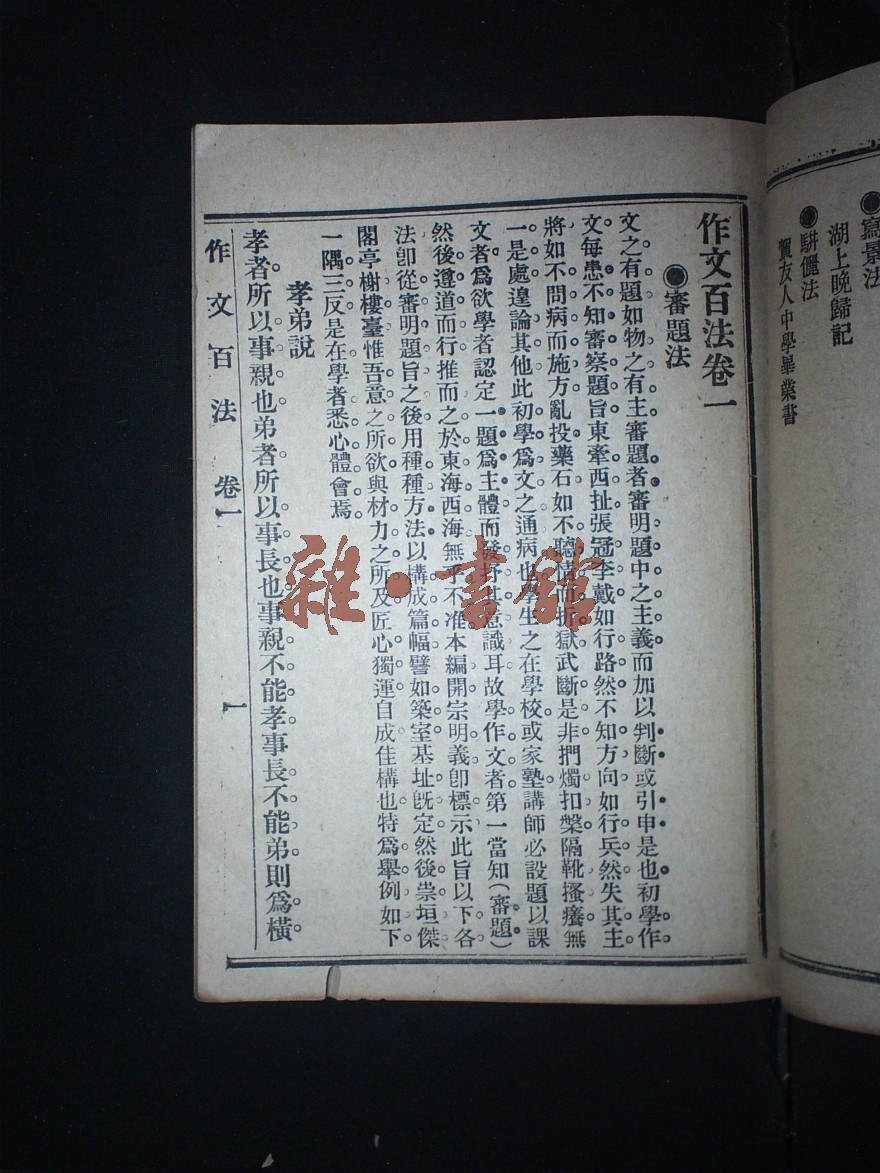 寫景法
湖上晚歸記
駢儷法
賀友人中學畢業書
作文百法卷一
●審題法
文之有題如物之有主審題者審明題中之主義而加以判斷或引申是也初學作
文每患不知審察題旨東牽西扯張冠李戴如行路然不知方向如行兵然失其主
將如不問病而施方亂投藥石如不聽情而折獄武斷是非捫燭扣槃隔靴搔癢無
一是處遑論其他此初學爲文之通病也學生之在學校或家塾講師必設題以課
文者爲欲學者認定一題爲主體而發抒其意識耳故學作文者第一當知(審題)
然後遵道而行推而之於東海西海無乎不准本編開宗明義卽標示此旨以下各
法卽從審明題旨之後用種種方法以構成篇幅譬如築室基址旣定然後崇垣傑
閣亭榭樓臺惟吾意之所欲與材力之所及匠心獨運自成佳構也特爲舉例如下
一隅三反是在學者悉心體會焉
孝弟說
孝者所以事親也弟者所以事長也事親不能孝事長不能弟則爲橫
作文百法 卷一 一
雜·書館